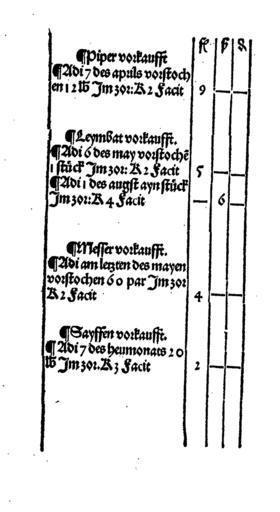 fl ß ₰
¶Piper vorkaufft
¶Adi 7 des aprils vorstoch
en 12 lb Jm Jor: K 2 Facit 9 — —
¶Leymbat vorkaufft.
¶Adi 6 des may vorstochē
1 stück Jm Jor: K 2 Facit 5 — —
¶Adi 1 des augst ayn stück
Jm Jor: K 4 Facit — 6 —
¶Messer vorkaufft.
¶Adi am letzten des mayen
vorstochen 60 par Jm Jor
K 2 Facit 4 — —
¶Sayffen vorkaufft.
¶Adi 7 des heumonats 20
lb Jm Jor. K 3 Facit 2 — —